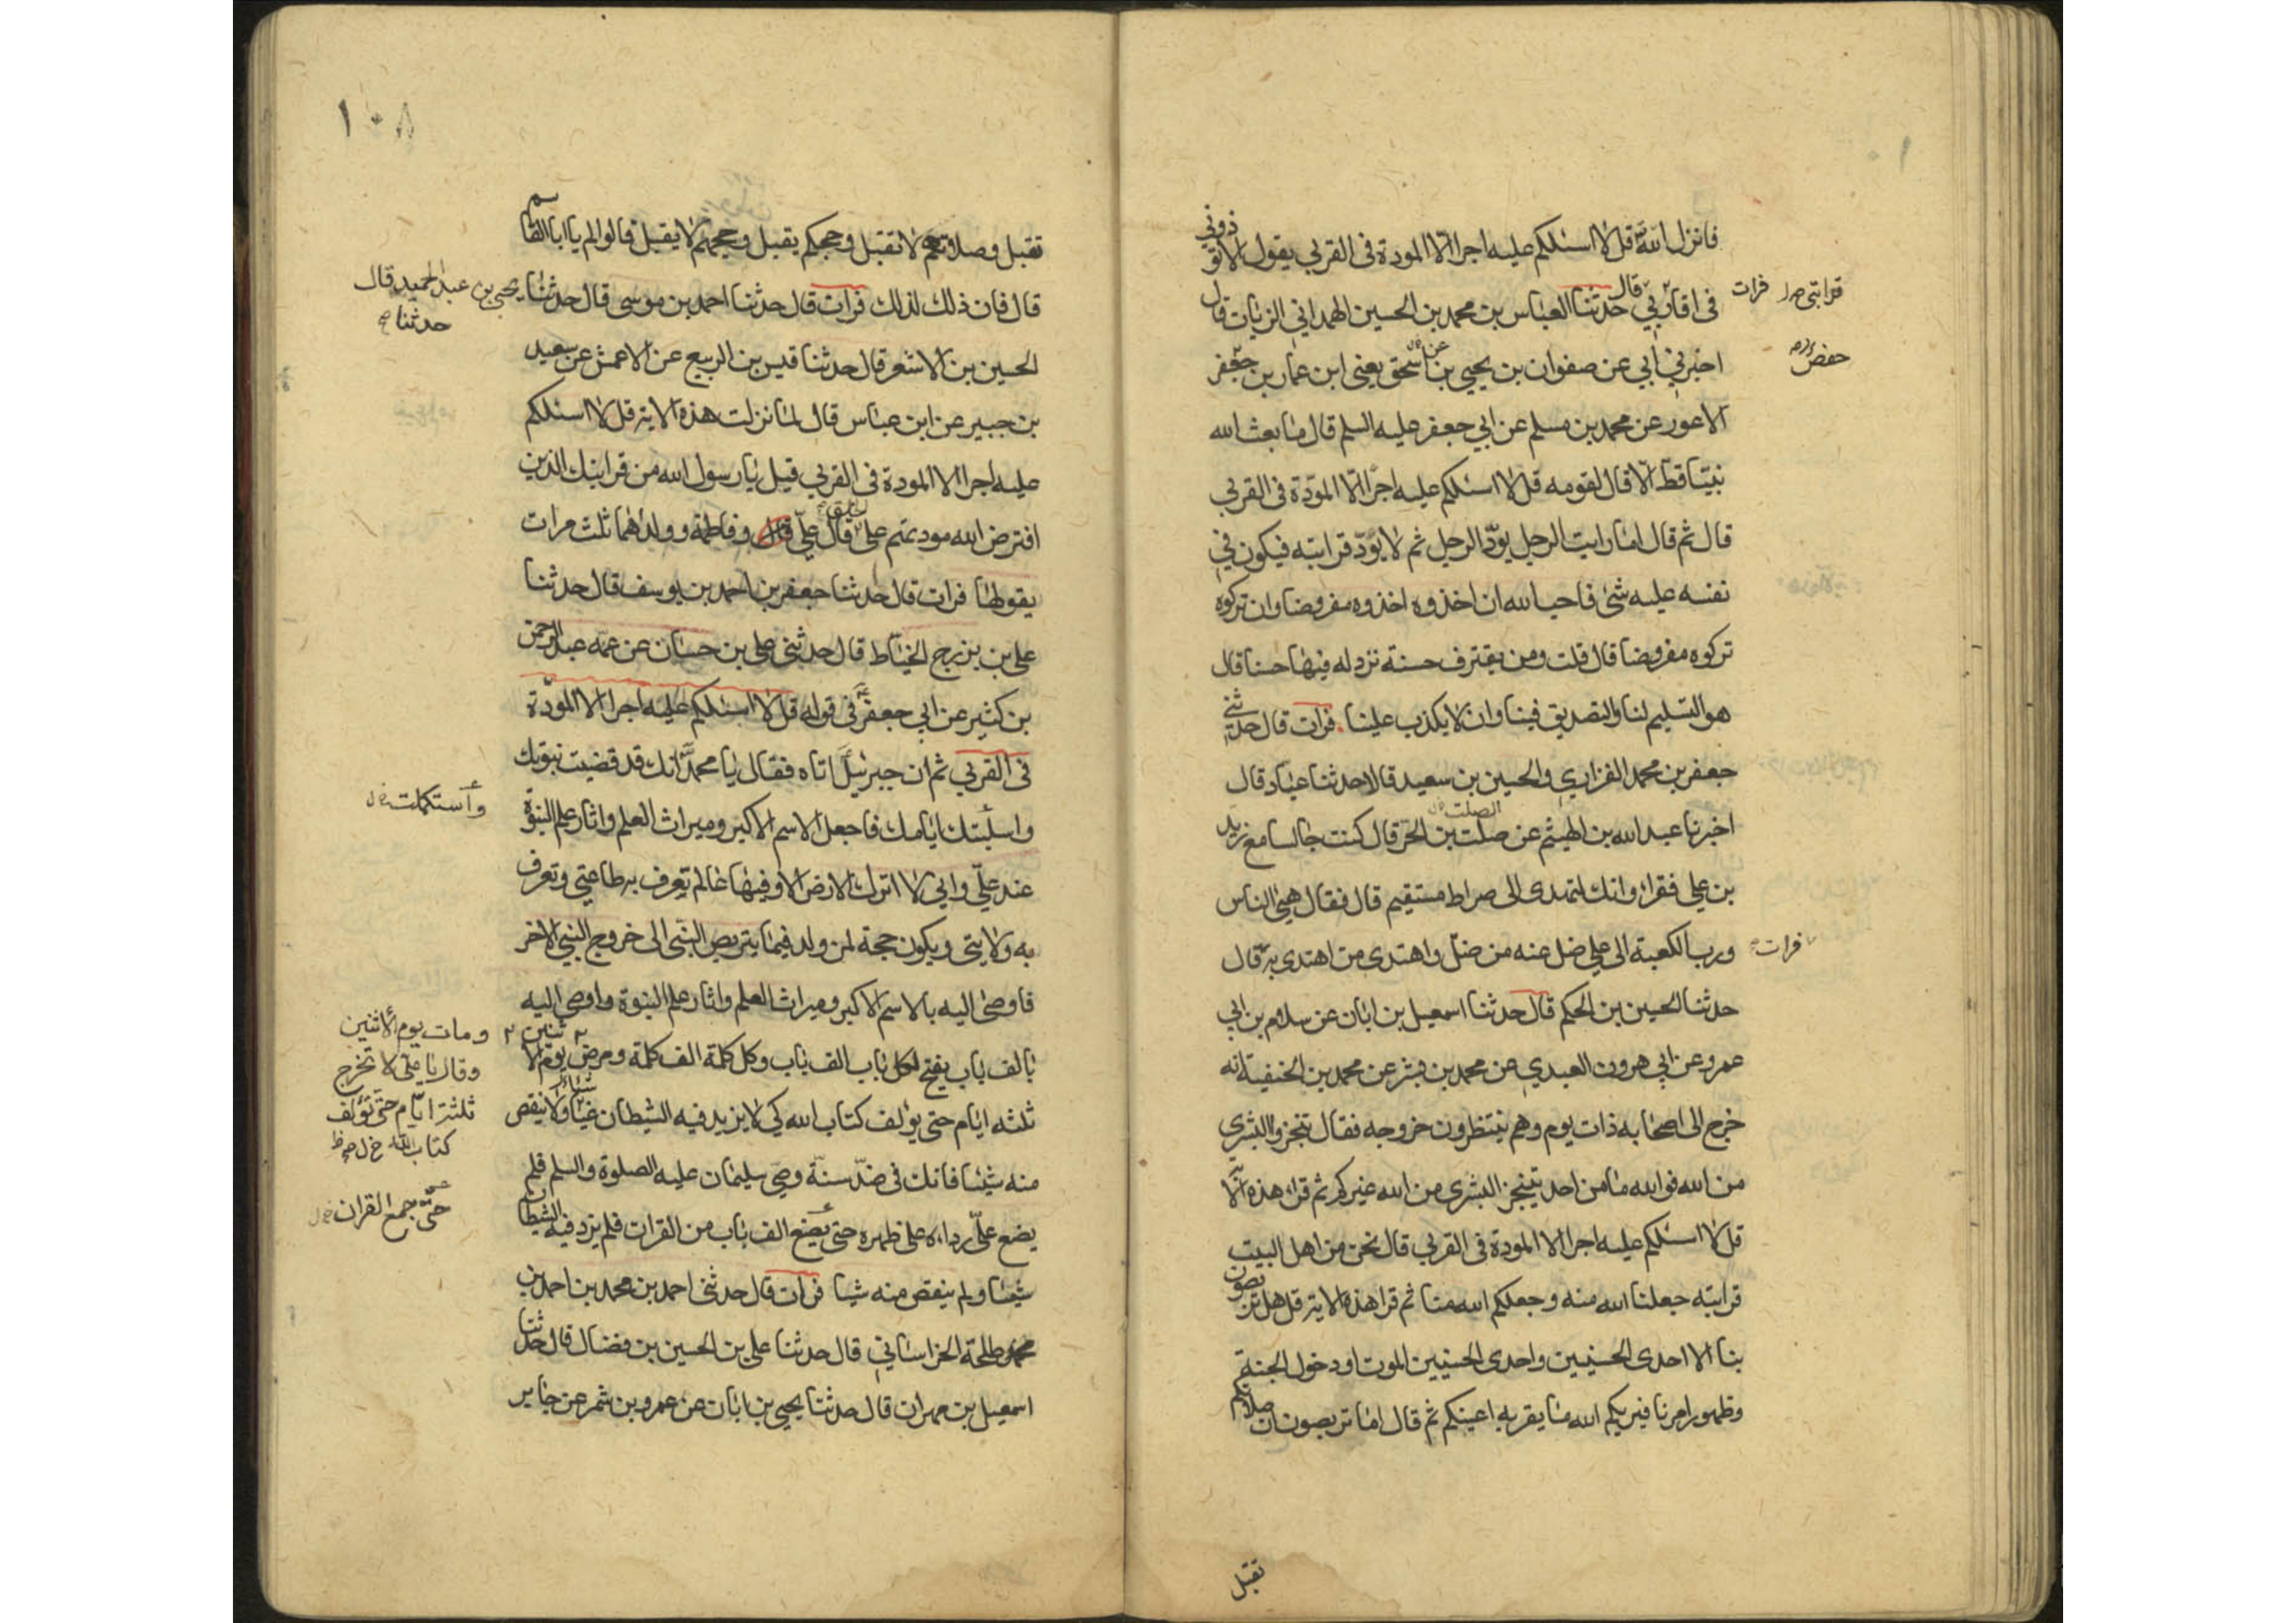 فانزل الله قل لا اسئلكم عليه اجرا الا المودة فى القربى يقول الا تؤذونى
فى اقاربى قال حدثنا العباس بن محمد بن الحسين الهمدانى الزيات قال
فرات
قرابتى
اخبرنى ابى عن صفوان بن يحيى عن اسحق يعنى ابن عمار بن جعفر
حفص
الاعور عن محمد بن مسلم عن ابى جعفر عليه السلم قال ما بعث الله
نبيا قط الا قال لقومه قل لا اسئلكم عليه اجرا الا المودة فى القربى
قال ثم قال اما رايت الرجل يودّ الرجل ثم لا يودّ قرابته فيكون فى
نفسه عليه شئ فاحب الله ان اخذوه اخذوه مفروضا وان تركوه
تركوه مفروضا قال قلت ومن يقترف حسنة نزد له فيها حسنا قال
هو التسليم لنا والتصديق فينا وان لا يكذب علينا فرات قال حدثنى
جعفر بن محمد الفزارى والحسين بن سعيد قالا حدثنا عباد قال
اخبرنا عبد الله بن الهيثم عن صلت بن الحر قال كنت جالسا مع زيد
الصلت
بن على فقرا وانك لتهدى الى صراط مستقيم قال فقال هيئ الناس
ورب الكعبة الى على ضل عنه من ضل واهتدى من اهتدى به قال
فرات
حدثنا الحسين بن الحكم قال حدثنا اسمعيل بن ابان عن سلام بن ابى
عمرو عن ابى هرون العبدى عن محمد بن بشر عن محمد بن الحنفية انه
خرج الى اصحابه ذات يوم وهم ينتظرون خروجه فقال تنجزوا البشرى
من الله فوالله ما من احد يتنجز البشرى من الله غيركم ثم قرا هذه الا
قل لا اسئلكم عليه اجرا الا المودة فى القربى قال نحن من اهل البيت
قرابته جعلنا الله منه وجعلكم الله منا ثم قرا هذه الاية قل هل تربصون
بنا الا احدى الحسنيين واحدى الحسنيين الموت او دخول الجنة
وظهور امرنا فيريكم الله ما يقر به اعينكم ثم قال اما تربصون ان صلاتكم
تقبل
١٠٨
تقبل وصلاتهم لا تقبل وحجكم يقبل وحجهم لا يقبل قالوا لم يا ابا القاسم
قال فان ذلك لذلك فرات قال حدثنا احمد بن موسى قال حدثنا
يحيى بن عبد الحميد قال
حدثنا
الحسين بن الاشعر قال حدثنا قيس بن الربيع عن الاعمش عن سعيد
بن جبير عن ابن عباس قال لما نزلت هذه الاية قل لا اسئلكم
عليه اجرا الا المودة فى القربى قيل يا رسول الله من قرابتك الذين
افترض الله مودتهم على قال على وفاطمة وولدهما ثلث مرات
يقولها فرات قال حدثنا جعفر بن احمد بن يوسف قال حدثنا
على بن بزرج الخياط قال حدثنى على بن حسان عن عمه عبد الرحمن
بن كثير عن ابى جعفر فى قوله قل لا اسئلكم عليه اجرا الا المودة
فى القربى ثم ان جبرئيل اتاه فقال يا محمد انك قد قضيت نبوتك
واستكملت
ايامك فاجعل الاسم الاكبر وميراث العلم واثار علم النبوة
عند على وانى لا اترك الارض الا وفيها عالم تعرف به طاعتى وتعرف
به ولايتى ويكون حجة لمن ولد فيما يتربص النبى الى خروج النبى الاخر
فاوصى اليه بالاسم الاكبر وميراث العلم واثار علم النبوة واوصى اليه
بالف باب يفتح لكل باب الف باب وكل كلمة الف كلمة ومرض يوم الا ثنين
ومات يوم الاثنين
وقال يا على لا تخرج
ثلثة ايام حتى تؤلف
كتاب الله
ثلثه ايام حتى يؤلف كتاب الله كى لا يزيد فيه الشيطان شيئا ولا ينقص
منه شيئا فانك فى ضدّ سنة وصى سليمان عليه الصلوة والسلم فلم
يضع على رداءه على ظهره حتى الف باب من القران فلم يزد فيه الشيطان
حتى جمع القران
شيئا ولم ينقص منه شيئا فرات قال حدثنى احمد بن محمد بن احمد بن
طلحة الخراسانى قال حدثنا على بن الحسين بن فضال قال حدثنا
اسمعيل بن مهران قال حدثنا يحيى بن ابان عن عمرو بن شمر عن جابر